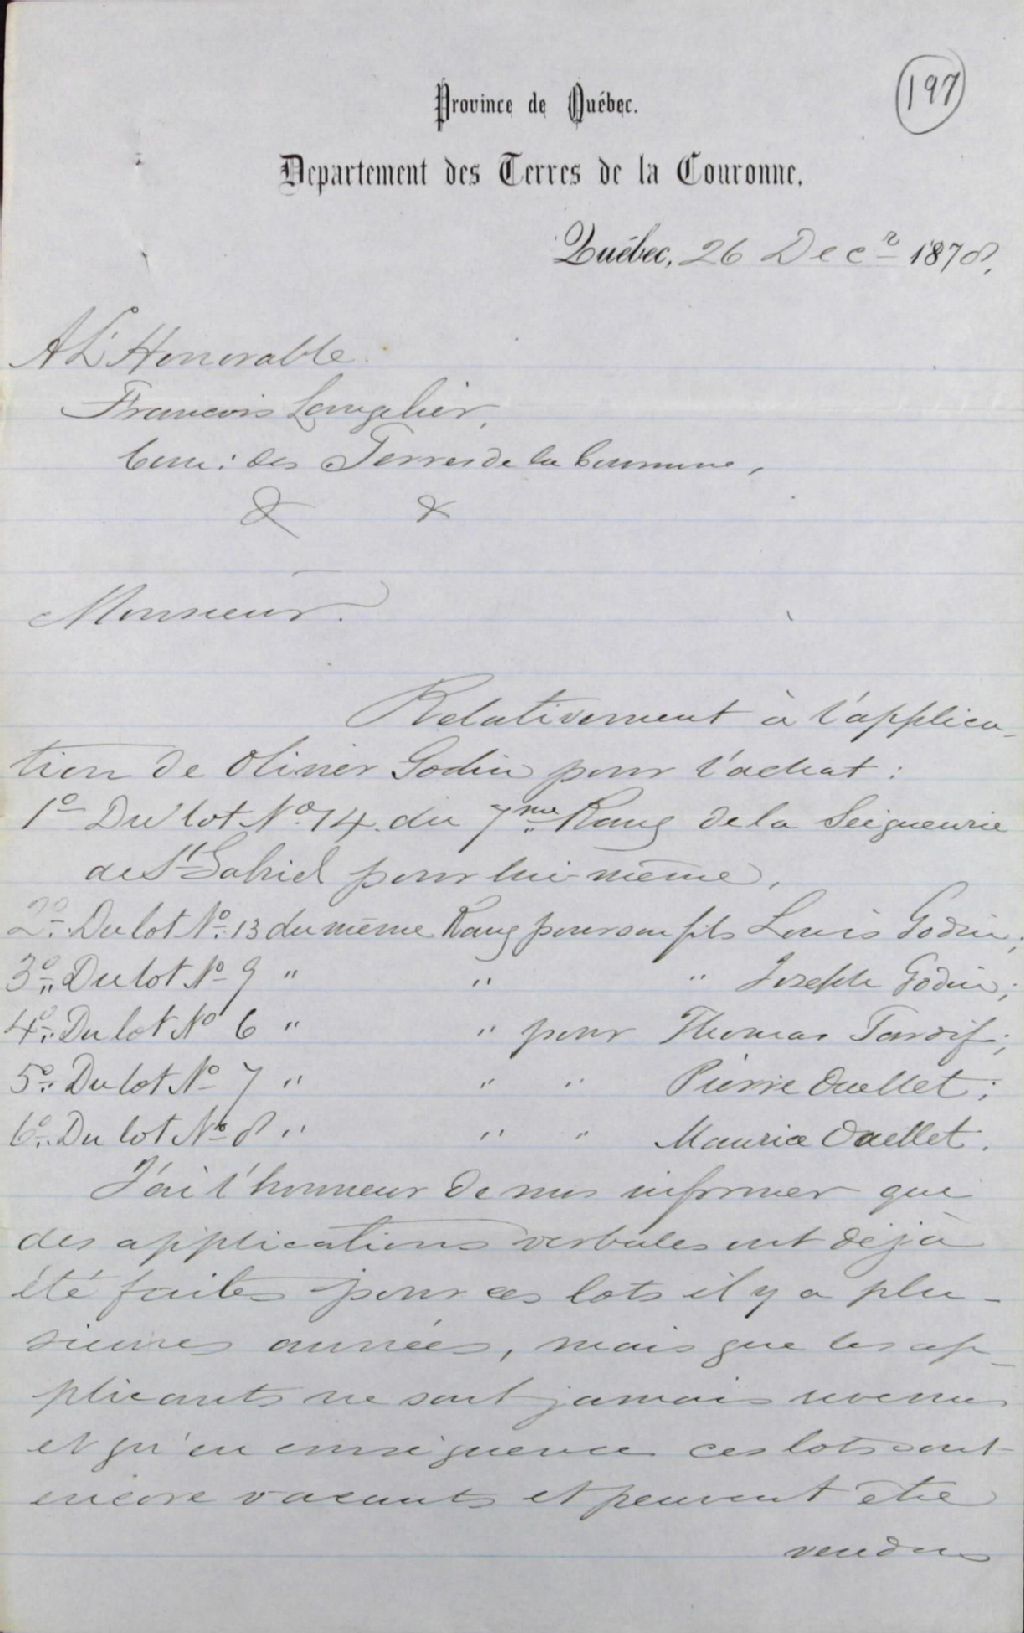 197
Province de Québec.
Departement des Terres de la Couronne.
Québec, 26 Decr 1878.
A L'Honorable
Francois Langelier,
Com: des Terres de la Couronne,
& &
Monsieur.
Relativement à l'applica-
tion de Olivier Godin pour l'achat:
1o Du lot No 14 du 7me Rang de la Seigneurie
de St Gabriel pour lui-même,
2o Du lot No 13 du même Rang pour son fils Louis Godin;
3o Du lot No 9 " " " Joseph Godin;
4o Du lot No 6 " " pour Thomas Tardif;
5o Du lot No 7 " " " Pierre Ouellet;
6o Du lot No 8 " " " Maurice Ouellet.
J'ai l'honneur de vous informer que
des applications verbales ont déjà
été faites pour ces lots il y a plu-
sieures années, mais que les ap-
plicants ne sont jamais revenus
et qu'en conséquence ces lots sont
encore vacants et peuvent être
vendus